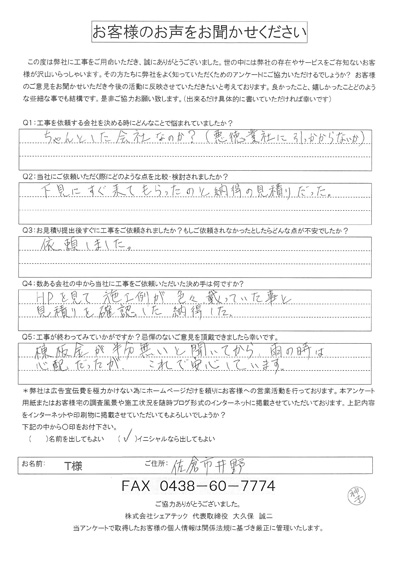 お客様のお声をお聞かせください
この度は弊社に工事をご用命いただき、誠にありがとうございました。世の中には弊社の存在やサービスをご存知ないお客
様が沢山いらっしゃいます。その方たちに弊社をよく知っていただくためのアンケートにご協力いただけるでしょうか？ お客様
のご意見をお聞かせいただき今後の活動に反映させていきたいと考えております。良かったこと、嬉しかったことどのよう
な些細な事でも結構です。是非ご協力お願い致します。（出来るだけ具体的に書いていただければ幸いです）
Q1：工事を依頼する会社を決める時にどんなことで悩まれていましたか？
ちゃんとした会社なのか？（悪徳業社に引っかからないか）
Q2：当社にご依頼いただく際にどのような点を比較・検討されましたか？
下見にすぐ来てもらったのと納得の見積りだった。
Q3：お見積り提出後すぐに工事をご依頼されましたか？もしご依頼されなかったとしたらどんな点が不安でしたか？
依頼しました。
Q4：数ある会社の中から当社に工事をご依頼いただいた決め手は何ですか？
HPを見て 施工例が 色々載っていた事と
見積りを確認した 納得した。
Q5：工事が終わってみていかがですか？忌憚のないご意見を頂戴できましたら幸いです。
棟板金が半分無いと聞いてから、雨の時は
心配だったが、これで安心しています。
＊弊社は広告宣伝費を極力かけない為にホームページだけを頼りにお客様への営業活動を行っております。本アンケート
用紙またはお客様宅の調査風景や施工状況を随時ブログ形式のインターネットに掲載させていただいております。上記内容
をインターネットや印刷物に掲載させていただいてもよろしいでしょうか？
下記の中から〇印をお付下さい。
（ ）名前を出してもよい （✓）イニシャルなら出してもよい
お名前： T様 ご住所： 佐倉市井野
FAX 0438-60-7774
ご協力ありがとうございました。
株式会社シェアテック 代表取締役 大久保 誠二
当アンケートで取得したお客様の個人情報は関係法規に基づき厳正に管理いたします。